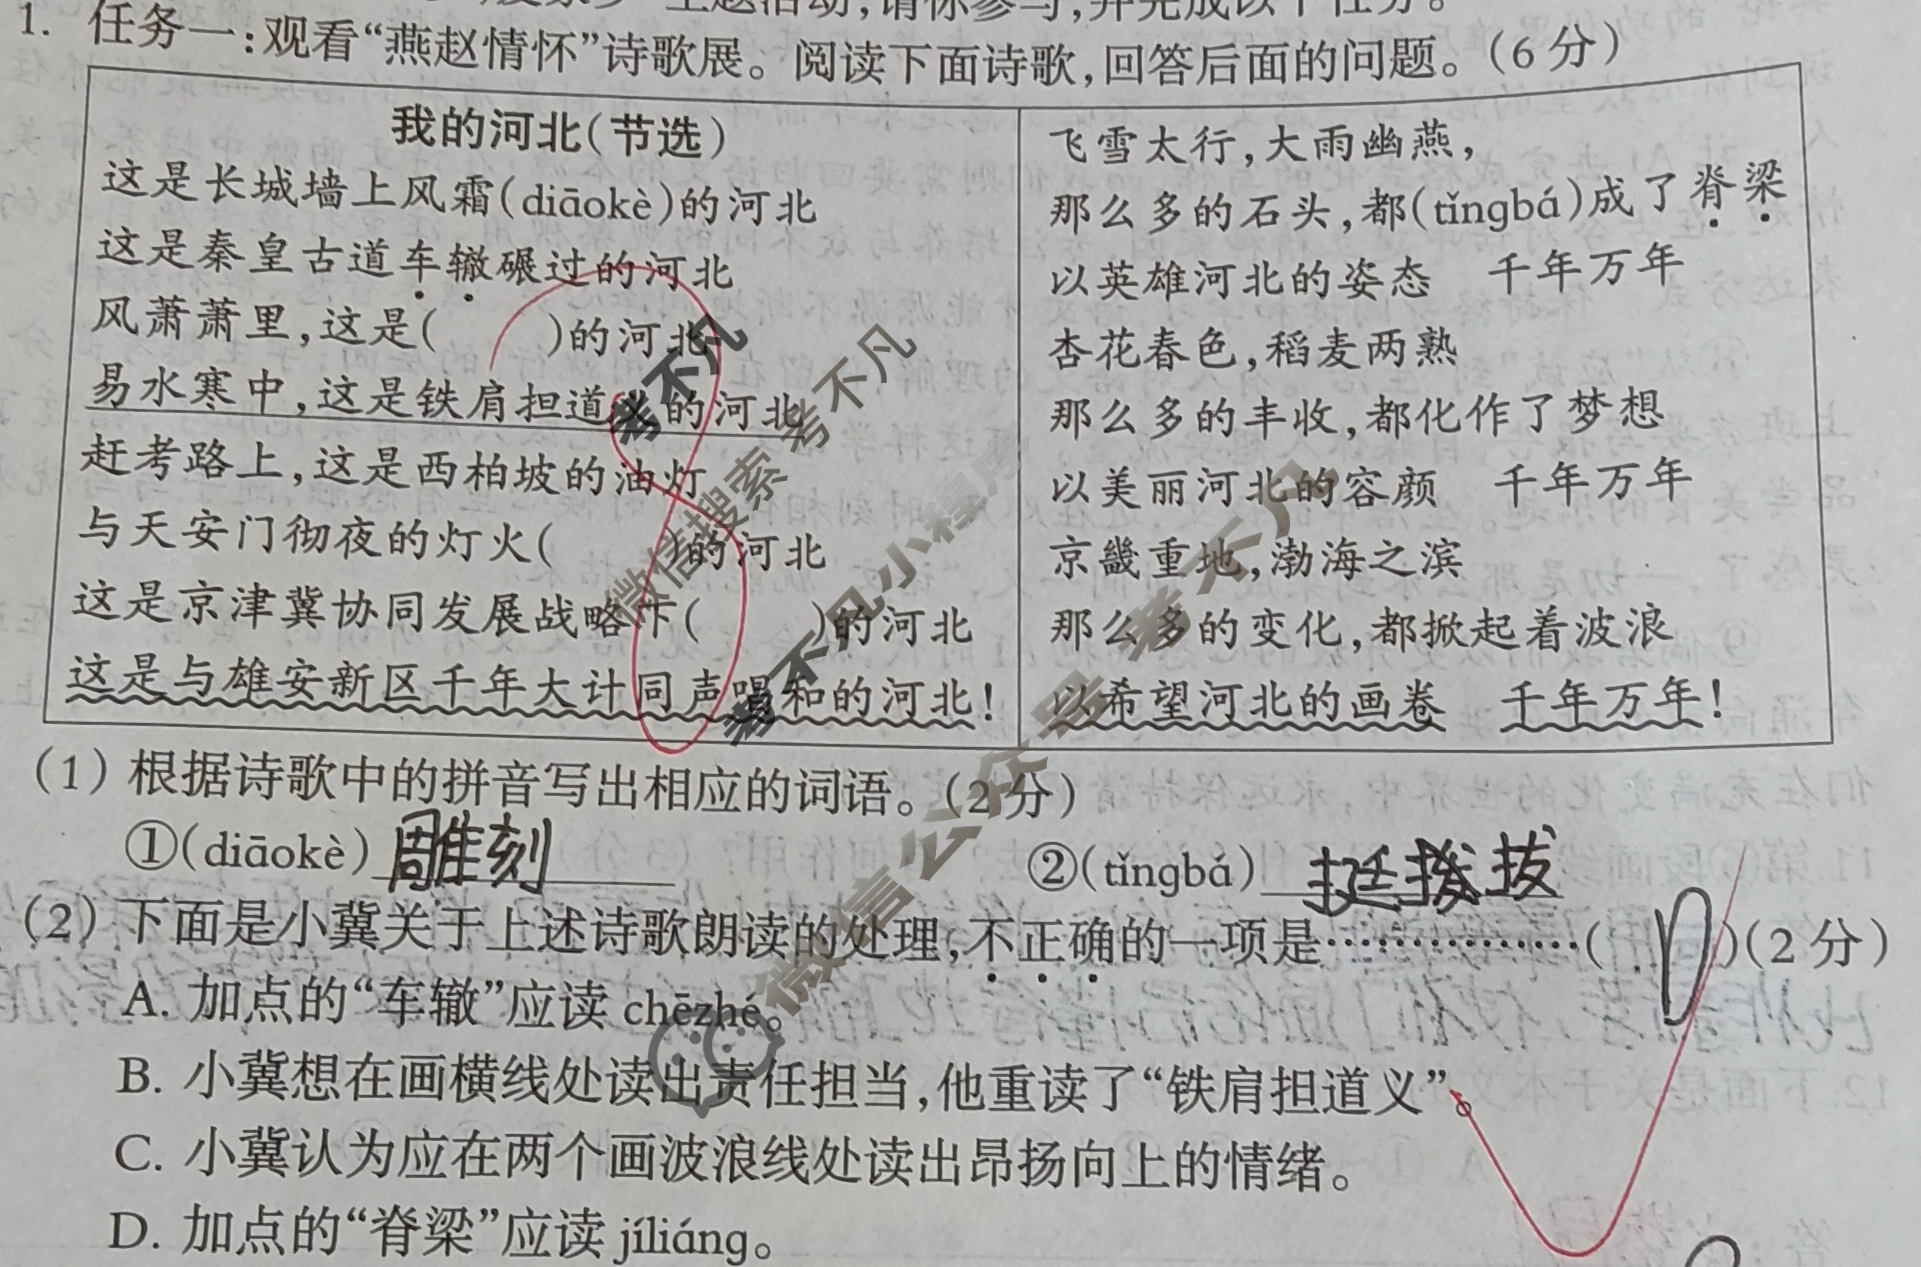 1. 任务一:观看“燕赵情怀”诗歌展。阅读下面诗歌,回答后面的问题。(6分)
我的河北(节选)
这是长城墙上风霜(diāokè)的河北
这是秦皇古道车辙碾过的河北
风萧萧里,这是(　　)的河北
易水寒中,这是铁肩担道义的河北
赶考路上,这是西柏坡的油灯
与天安门彻夜的灯火(　　)的河北
这是京津冀协同发展战略下(　　)的河北
这是与雄安新区千年大计同声唱和的河北!
飞雪太行,大雨幽燕,
那么多的石头,都(tǐngbá)成了脊梁
以英雄河北的姿态　千年万年
杏花春色,稻麦两熟
那么多的丰收,都化作了梦想
以美丽河北的容颜　千年万年
京畿重地,渤海之滨
那么多的变化,都掀起着波浪
以希望河北的画卷　千年万年!
(1)根据诗歌中的拼音写出相应的词语。(2分)
①(diāokè)雕刻　②(tǐngbá)挺拔
(2)下面是小冀关于上述诗歌朗读的处理,不正确的一项是……………( D )(2分)
A. 加点的“车辙”应读 chēzhé。
B. 小冀想在画横线处读出责任担当,他重读了“铁肩担道义”。
C. 小冀认为应在两个画波浪线处读出昂扬向上的情绪。
D. 加点的“脊梁”应读 jíliáng。
考不凡
微信搜索 考不凡
考不凡小程序
微信公众号 考不凡